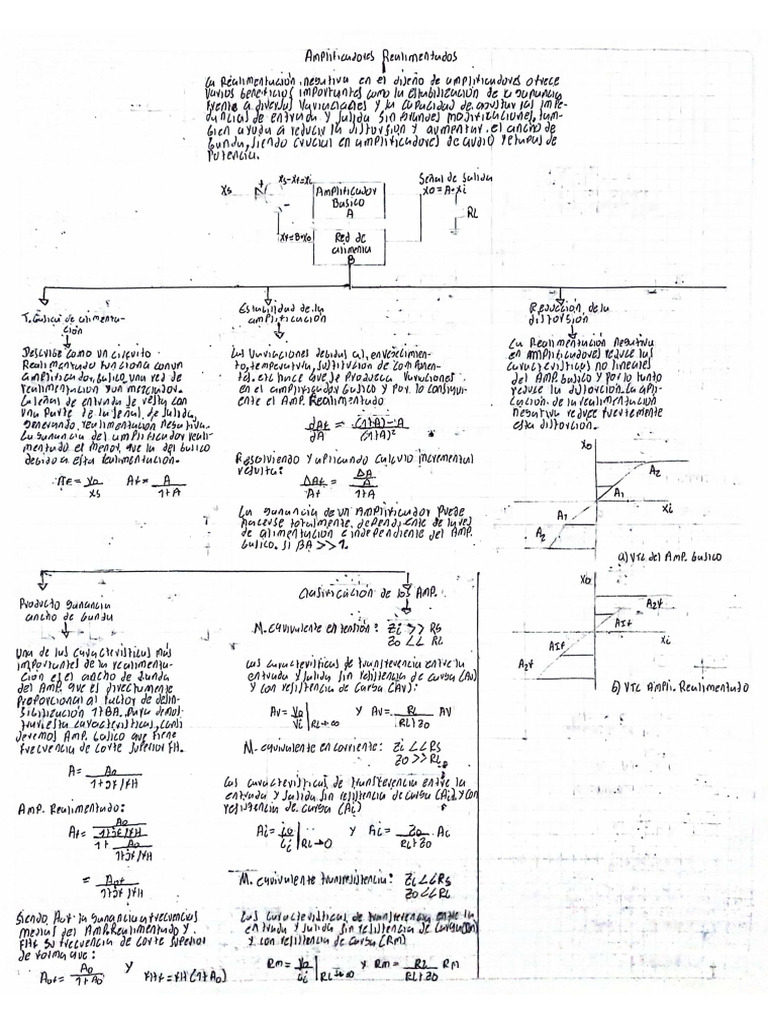 Amplificadores Realimentados
La Realimentación negativa en el diseño de amplificadores ofrece
varios beneficios importantes como la estabilización de la ganancia
frente a diversas variaciones y la capacidad de ajustar las impe-
dancias de entrada y salida sin grandes modificaciones, tam-
bien ayuda a reducir la distorsion y aumentar el ancho de
banda, siendo crucial en amplificadores de audio y etapas de
Potencia.
Xs
+
-
Xs-Xf=Xi
Amplificador
Basico
A
Señal de salida
Xo=A·Xi
RL
Xf=B·Xo
Red de
alimenta
B
T. Basica de alimenta-
ción
Describe como un circuito
Realimentado funciona con un
amplificador basico, una red de
realimentación y un mezclador.
La señal de entrada se resta con
una parte de la señal de salida,
generando realimentación negativa.
La ganancia del amplificador reali-
mentado es menor que la del basico
debido a esta realimentación.
AF = Xo/Xs Af = A/1+A
Estabilidad de la
amplificación
Las Variaciones debidas al envejecimien-
to, temperatura, sustitución de componen-
tes, etc hace que se produzca variaciones
en el amplificador basico y por lo consigui-
ente el Amp. Realimentado
dAf/dA = (1+A)-A/(1+A)²
Resolviendo y aplicando calculo incremental
resulta:
ΔAf/Af = ΔA/A/1+A
La ganancia de un Amplificador Puede
hacerse totalmente dependiente de la red
de alimentación e independiente del Amp.
basico. Si BA>>1.
Reducción de la
distorsión
La Realimentación Negativa
en Amplificadores reduce las
características no lineales
del Amp. basico y por lo tanto
reduce la distorción. La apli-
cación de la realimentación
negativa reduce fuertemente
esta distorción.
Xo
A2
A1
Xi
A1
A2
a) VTC del Amp. basico
Xo
A2f
A1f
Xi
A1f
A2f
b) VTC Ampli. Realimentado
Producto ganancia
ancho de banda
Una de las características más
importantes de la realimenta-
ción es el ancho de banda
del Amp. que es directamente
proporcional al factor de desen-
sibilización 1+BA. Para demos-
trar esta característica, consi-
deremos Amp. basico que tiene
frecuencia de corte superior fH.
A = Ao/1+jf/fH
Amp. Realimentado:
Af = Ao/1+jf/fH/1+Ao/1+jf/fH
= Aof/1+jf/fH
Siendo Aof la ganancia a frecuencias
medias del Amp. Realimentado y
fHf su frecuencia de corte superior
de forma que:
Aof = Ao/1+Ao y fHf=fH(1+Ao)
Clasificación de los Amp.
M. equivalente en tensión: Zi >> RS
Zo << RL
Las características de transferencia entre la
entrada y salida sin resistencia de carga (Av)
y con resistencia de carga (Av):
Av = Vo/Vi |RL→∞ y Av = RL/RL+Zo AV
M. equivalente en corriente: Zi << RS
Zo >> RL
Las características de transferencia entre la
entrada y salida sin resistencia de carga (Ai) y con
resistencia de carga (Ai)
Ai = io/ii |RL→0 y Ai = Zo/RL+Zo Ai
M. equivalente transresistencia: Zi << RS
Zo << RL
Las características de transferencia entre la
entrada y salida sin resistencia de carga (Rm)
y con resistencia de carga (Rm)
Rm = Vo/ii |RL→∞ y Rm = RL/RL+Zo Rm